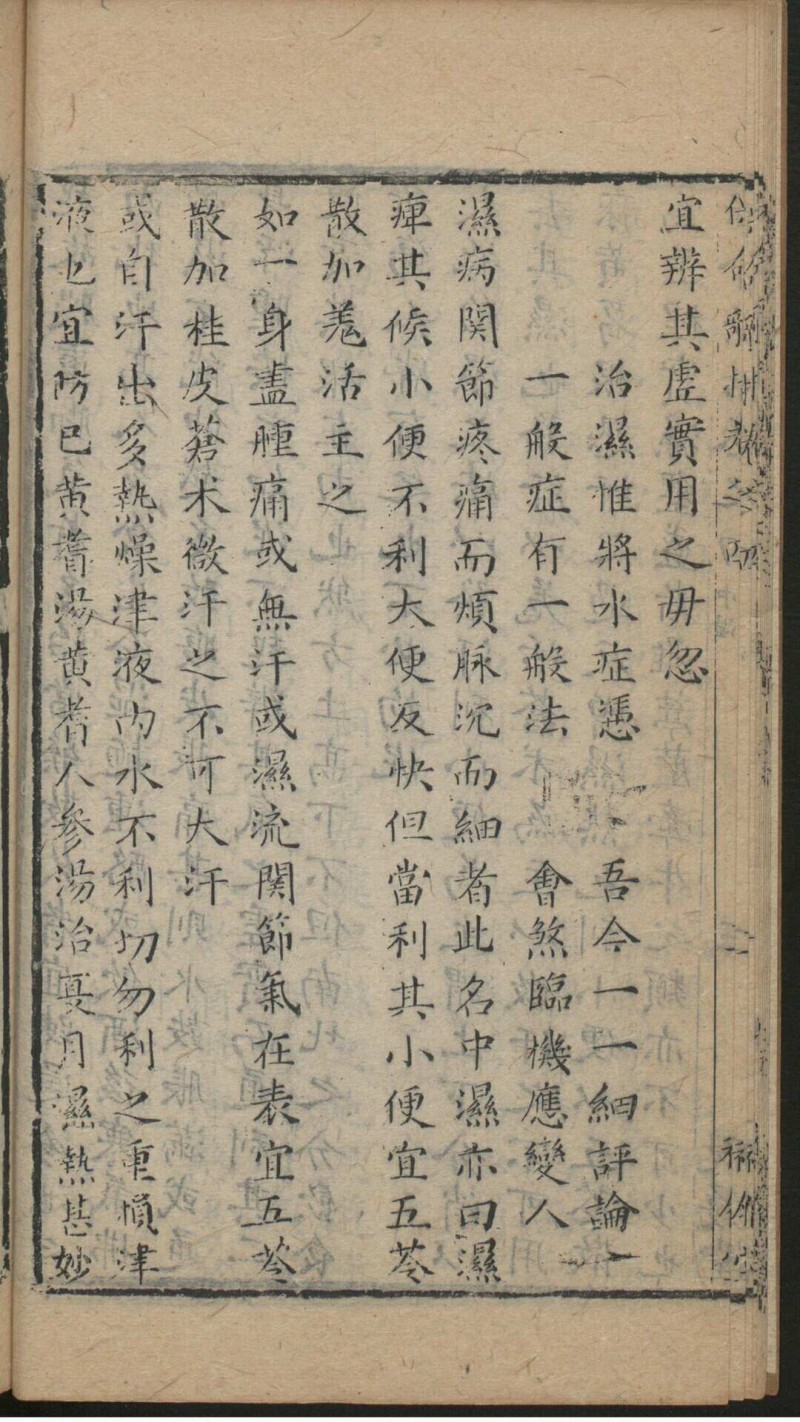 宜辨其虛實用之毋忽
治濕惟將水症憑 吾今一一細評論
一般症有一般法 會煞臨機應變人
濕病関節疼痛而煩脉沉而細者此名中濕亦曰濕
痺其候小便不利大便反快但當利其小便宜五苓
散加羗活主之
如一身盡腫痛或無汗或濕流関節氣在表宜五苓
散加桂皮蒼术微汗之不可大汗
或自汗出多熱燥津液內水不利切勿利之重損津
液也宜防巳黄耆湯黄耆人參湯治夏月濕熱甚妙